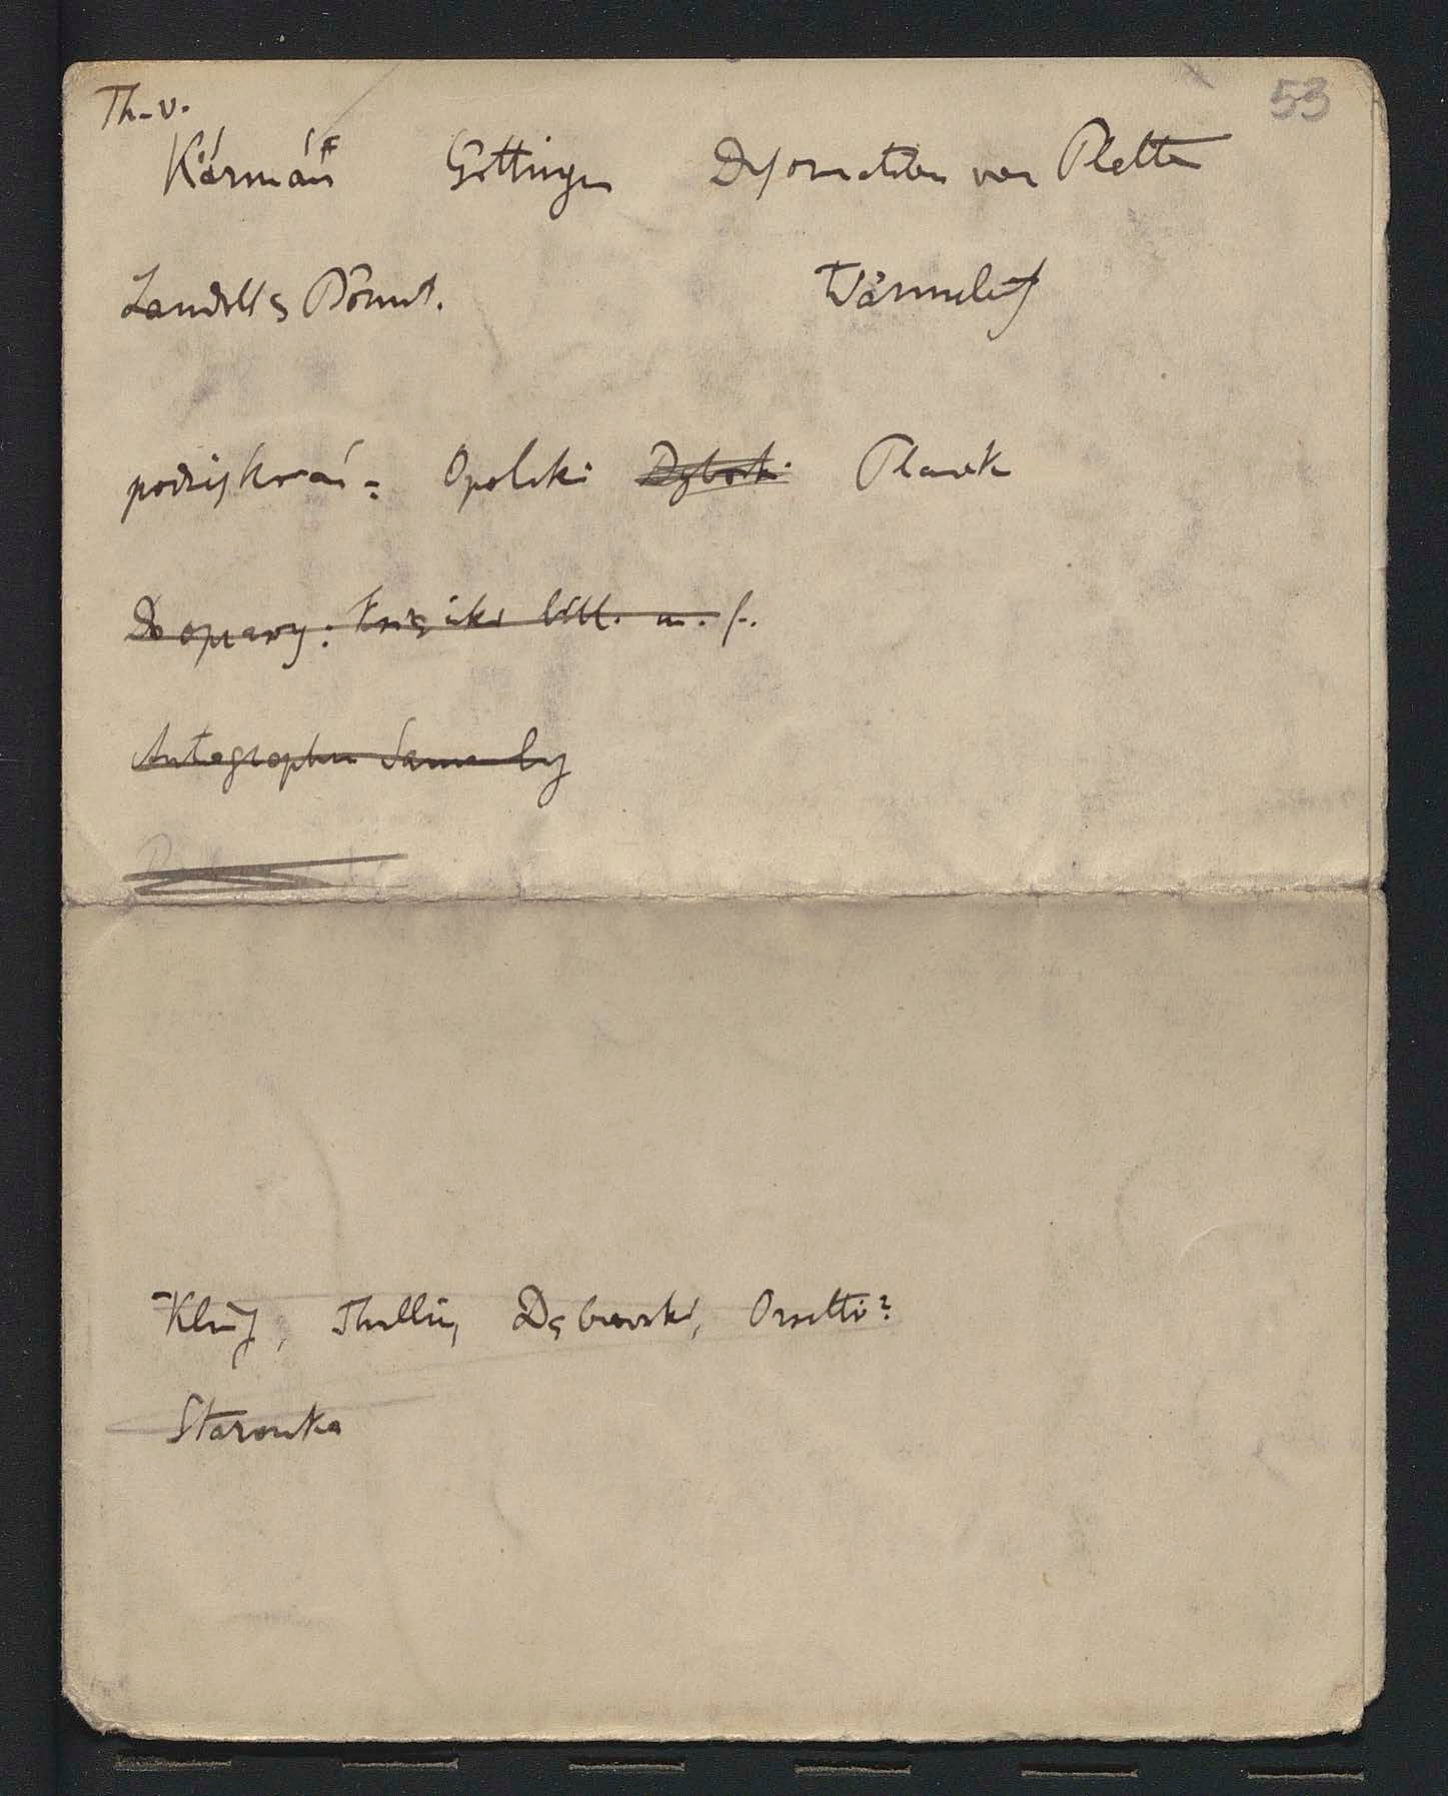 53
Th. v.
Kármán Göttingen Deformation von Platten
Landolt Börnst. Wärmeleit
podziękować: Opolski Dyboski Planck
Do oprawy: Książki bibl. m. f.
Autographen Samml
Klug, Thullie, Dąbrowski, Orsetti?
Staronka